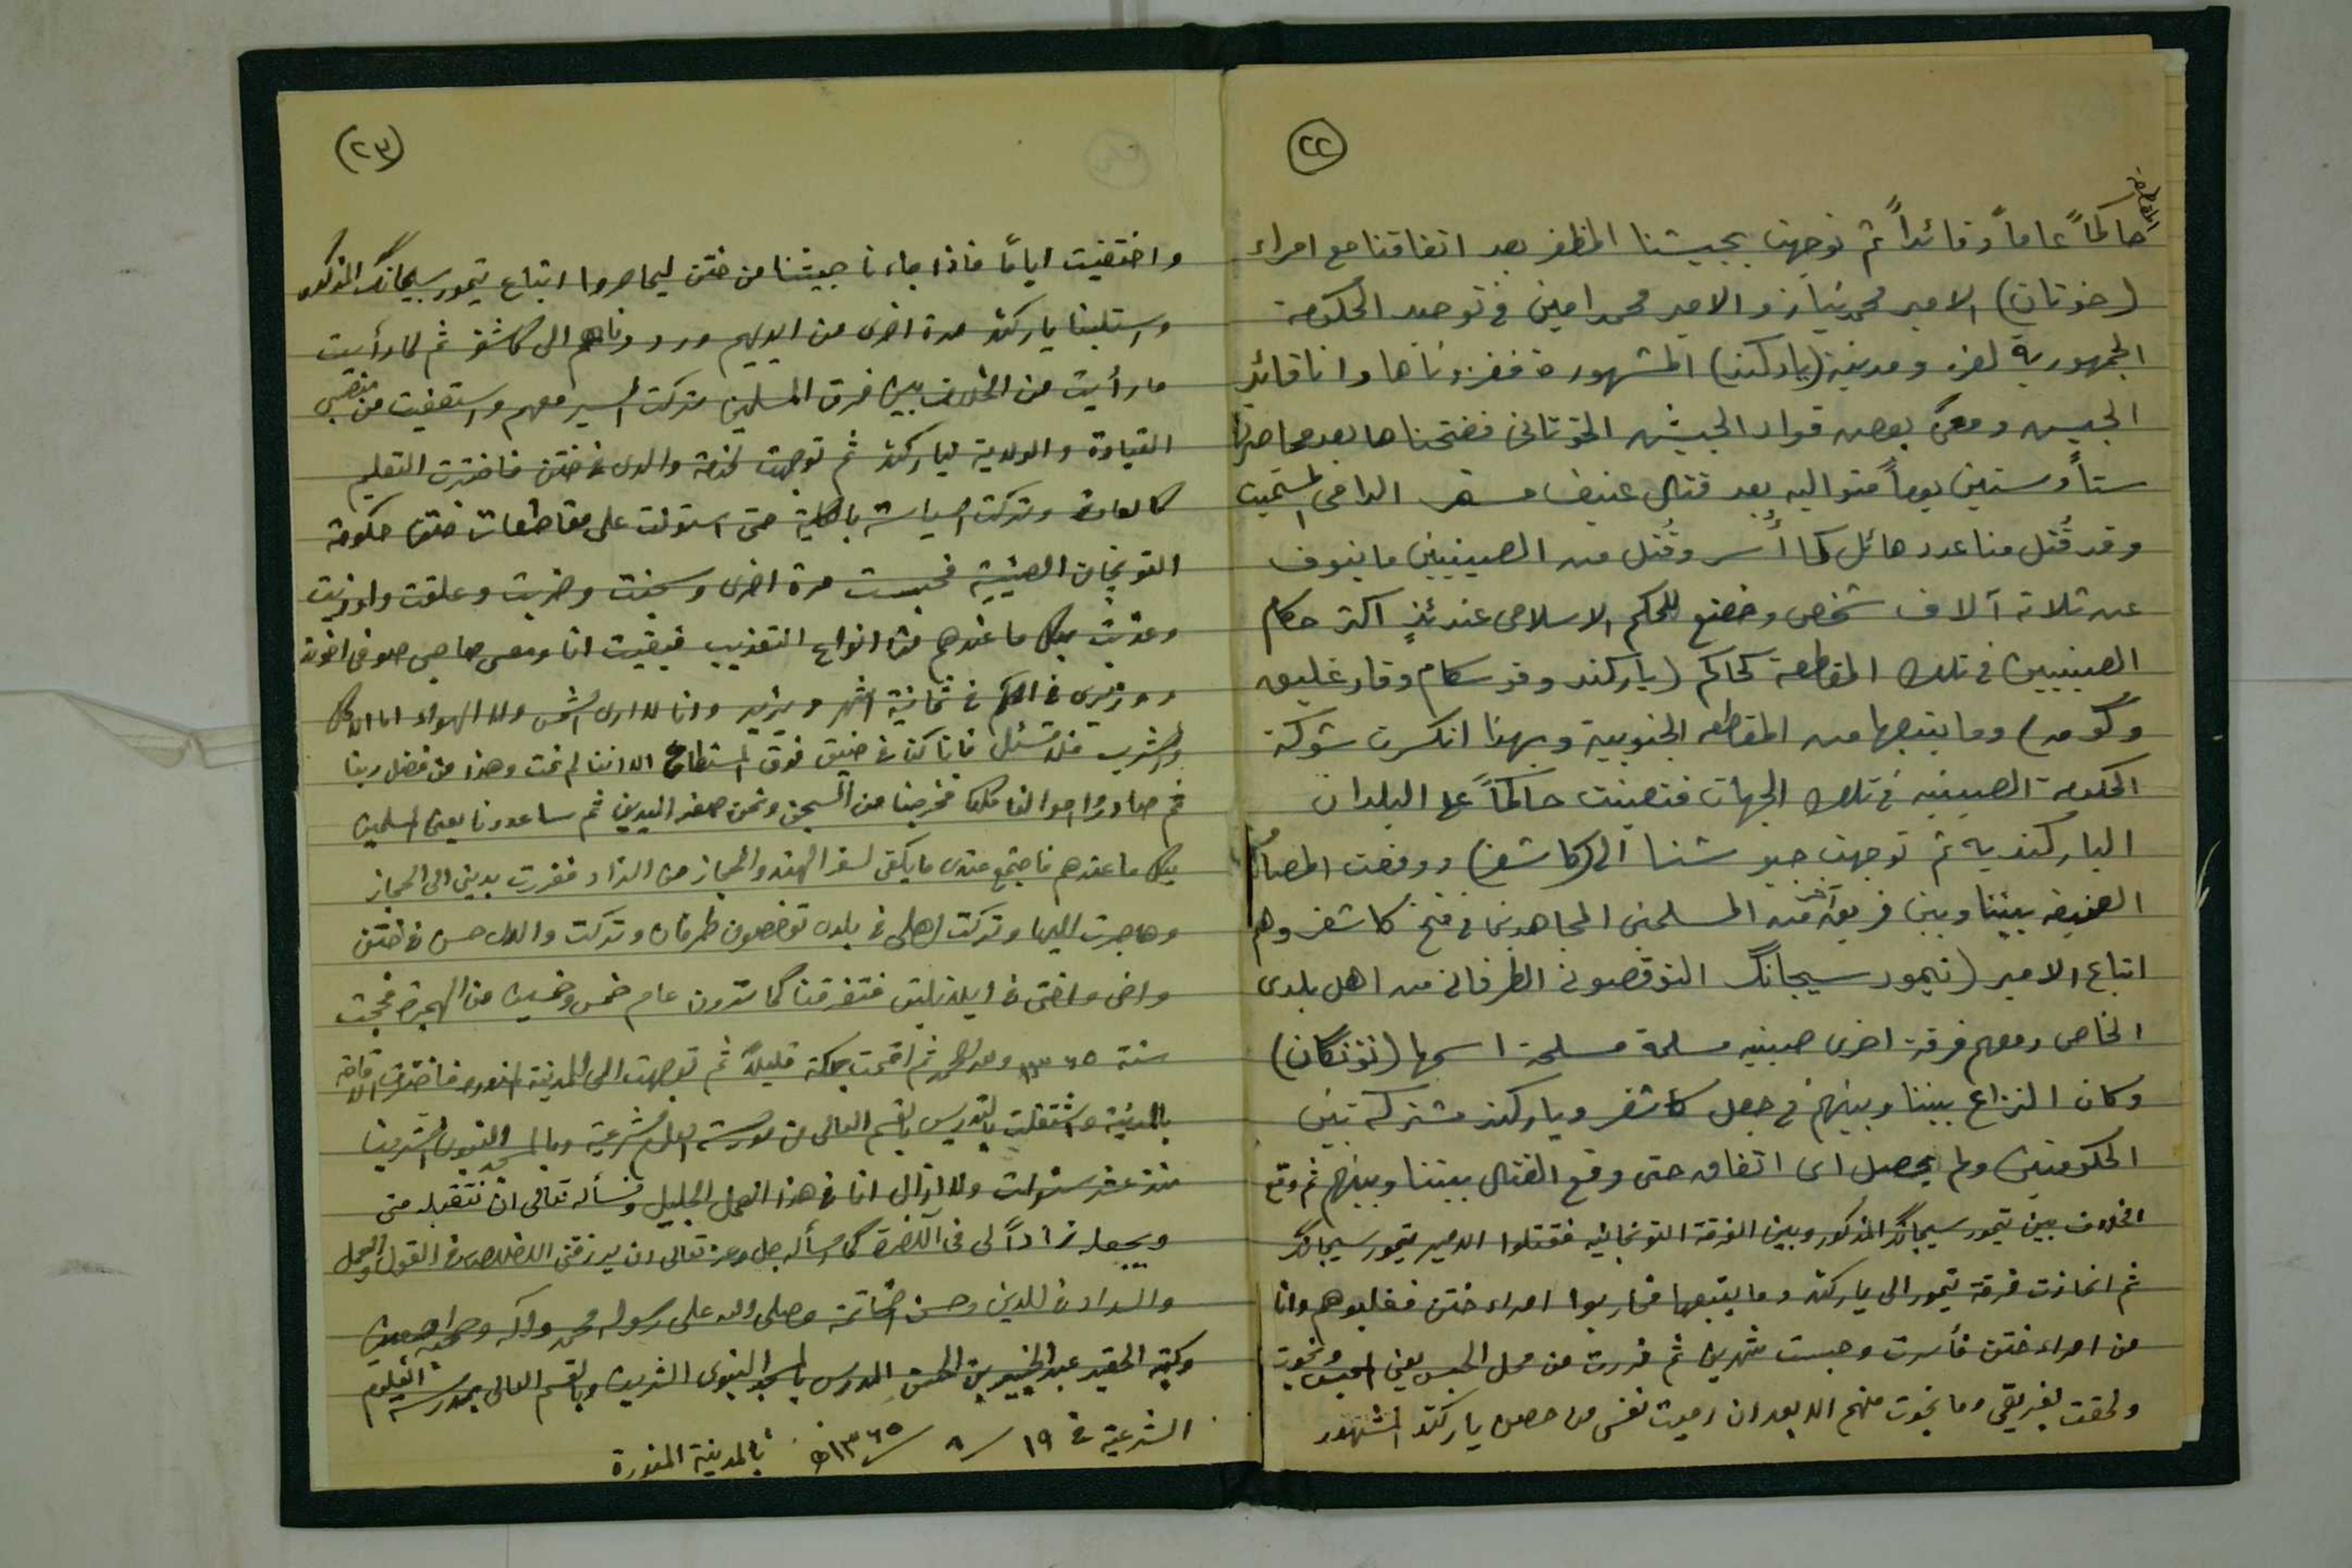 (٢٢)
المقاطعة
حاكماً عاماً وقائداً ثم توجهت بجيشنا المظفر بعد اتفاقنا مع امراء
(خوتان) الامير محمد نياز والامير محمد امين في توحيد الحكومة
الجمهورية لغزو مدينة (ياركند) المشهورة فغزوناها وانا قائد
الجيش ومعي بعض قواد الجيش الخوتاني ففتحناها بعد محاصرتها
ستاً وستين يوماً متواليه بعد قتال عنيف الدامي المستميت
وقد قُتل منا عدد هائل كما أُسر وقُتل من الصينيين ما ينوف
عن ثلاثة آلاف شخص وخضع للحكم الاسلامي عندئذٍ اكثر حكام
الصينيين في تلك المقاطعة كحاكم (ياركند وقوسكام وقارغليق
وگومه) وما يتبعها من المقاطعه الجنوبية وبهذا انكسرت شوكة
الحكومة الصينيه في تلك الجهات فتعينت حاكماً على البلدان
الياركنديه ثم توجهت جيوشنا الى (كاشغر) ووقعت المصادمة
العنيفه بيننا وبين فريق آخر من المسلمين المجاهدين في فتح كاشغر وهم
اتباع الامير (تيمور سيجانگ التوقصوني الطرفاني من اهل بلدى
الخاص ومعهم فرقة اخرى صينيه مسلمة مسلحة اسمها (تونگان)
وكان النزاع بيننا وبينهم في جعل كاشغر وياركند مشتركه بين
الحكومتين ولم يحصل اى اتفاق حتى وقع القتال بيننا وبينهم ثم وقع
الخلاف بين تيمور سيجانگ المذكور وبين الفرقة التونجانيه فقتلوا الامير تيمور سيجانگ
ثم انحازت فرقة تيمور الى ياركند وما يتبعها فحاربوا امراء ختن فغلبوهم وانا
من امراء ختن فأسرت وحبست شهرين ثم فررت من محل الحبس يعني الحبس ونجوت
ولحقت بفريقي وما نجوت منهم الا بعد ان رميت نفسى من حصن ياركند المشهور
(٢٣)
واختفيت اياماً فاذا جاءنا جيشنا من ختن ليحاصروا اتباع تيمور سيجانگ المذكور
واستلبنا ياركند مرة اخرى من ايديهم ورددناهم الى كاشغر ثم لما رأيت
ما رأيت من الخلاف بين فرق المسلمين تركت السير معهم واستعفيت من منصبي
القيادة والولاية لياركند ثم توجهت لخدمة والدى في ختن فاخترت التعليم
كالعادة وتركت السياسة بالكلية حتى استولت على مقاطعات ختن حكومة
التونجان الصينية فحبست مرة اخرى وسجنت وضربت وعلقت واوذيت
وعذبت بكل ما عندهم من انواع التعذيب فبقيت انا ومعى صاحبي صوفى اخوند
ووزيرى في الحكم في ثمانية اشهر ويزيد وانا لا ارى الشمس ولا الهواء اما الاكل
والشرب فلا تسئل فانا كنا في ضيق فوق المستطاع الا اننا لم نمت وهذا من فضل ربنا
ثم صادروا اموالنا كلها فخرجنا من السجن ونحن صفر اليدين ثم ساعدونا بعض المسلمين
بكل ما عندهم فاجتمع عندى ما يكفى لسفر الهند والحجاز من الزاد ففررت بديني الى الحجاز
وهاجرت اليها وتركت اهلى في بلدى توخصون طرفان وتركت والدى حسن في ختن
واخى واختى في ايلاديليق فتفرقنا كما ترون عام خمس وخمسين من الهجرة فحججت
سنة ١٣٥٥ ولله الحمد ثم اقمت بمكة قليلاً ثم توجهت الى المدينة المنوره فاخترت الاقامة
بالمدينة واشتغلت بالتدريس بالقسم العالى من مدرسة العلوم الشرعية وبالمسجد النبوى الشريف
منذ عشر سنوات ولا ازال انا في هذا العمل الجليل ونسأله تعالى ان نتقبله منى
ويجعله زاداً لى فى الآخرة كما اسأله جل وعز تعالى ان يرزقنى الاخلاص في القول والعمل
والسداد في الدين وحسن الخاتمة وصلى الله على رسوله محمد وآله وصحبه اجمعين
وكتبه الحقير عبد الخبير بن الحسن المدرس بالمسجد النبوى الشريف وبالقسم العالى بمدرسة العلوم
الشرعية في ١٩/٨/١٣٦٥ه بالمدينة المنورة